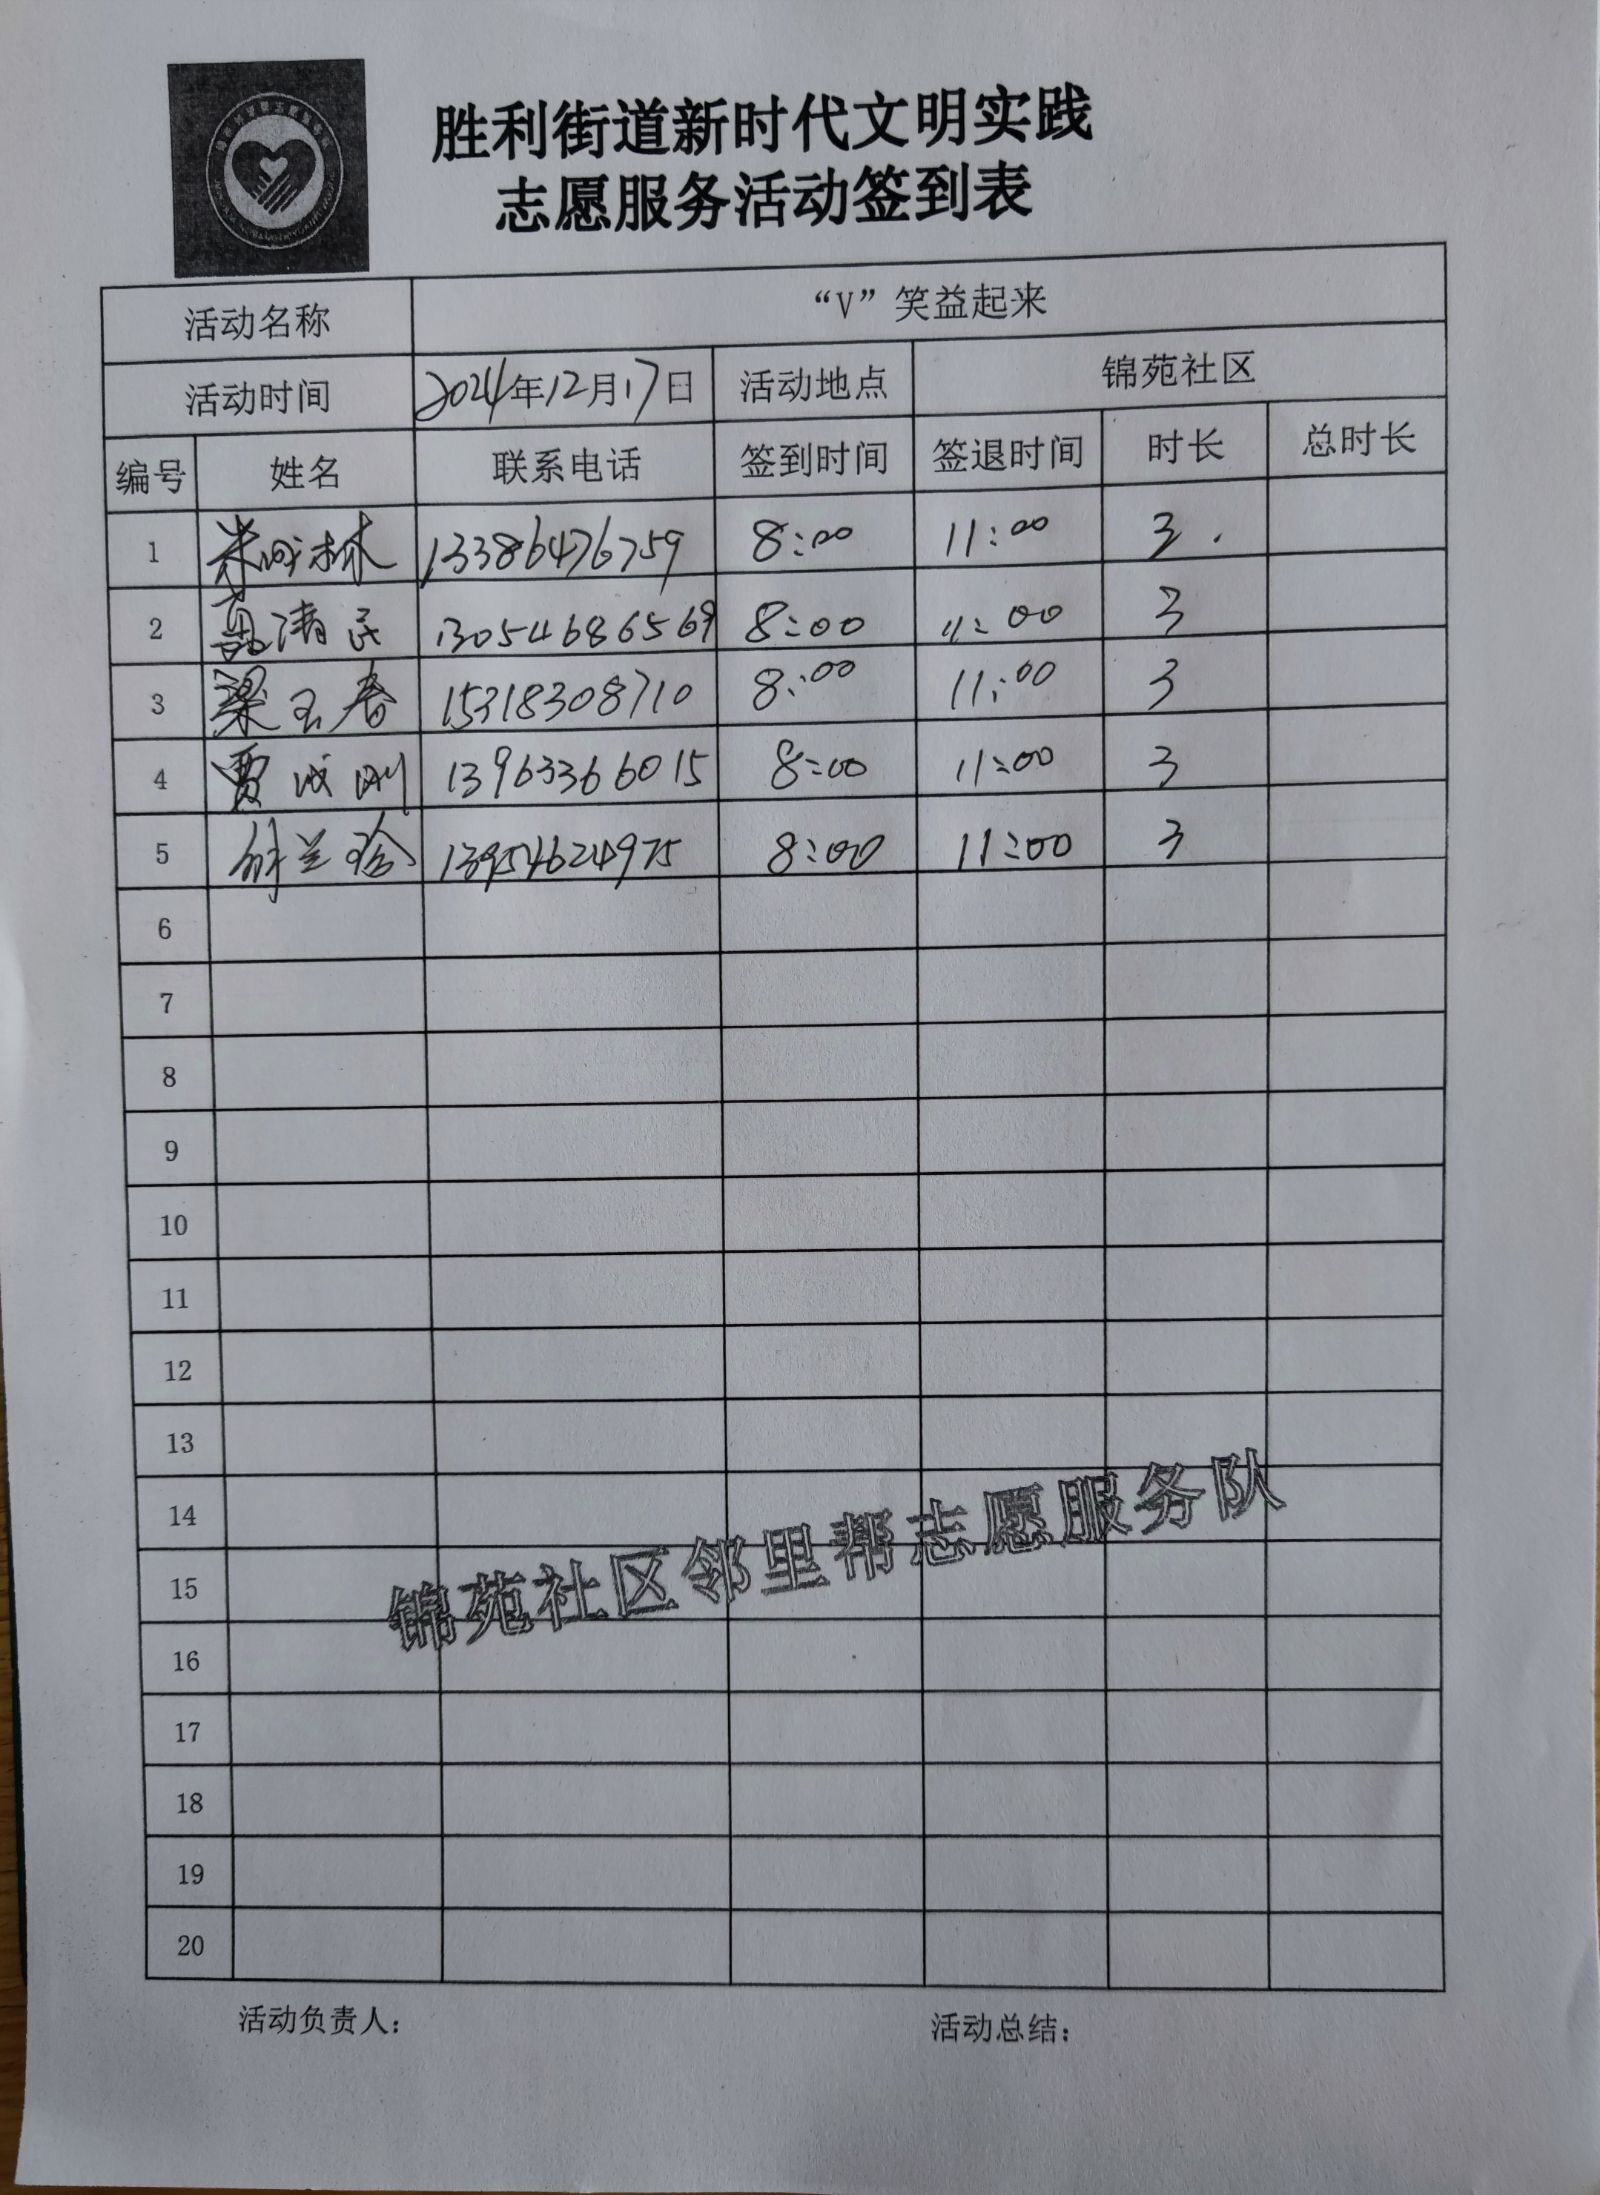 胜利街道新时代文明实践
志愿服务活动签到表
活动名称 “V”笑益起来
活动时间 2024年12月17日 活动地点 锦苑社区
编号 姓名 联系电话 签到时间 签退时间 时长 总时长
1 13386476759 8:00 11:00 3
2 清民 13054686569 8:00 11:00 3
3 梁玉春 15318308710 8:00 11:00 3
4 贾成刚 13963366015 8:00 11:00 3
5 13954624975 8:00 11:00 3
6
7
8
9
10
11
12
13
14
15
16
17
18
19
20
锦苑社区邻里帮志愿服务队
活动负责人: 活动总结: